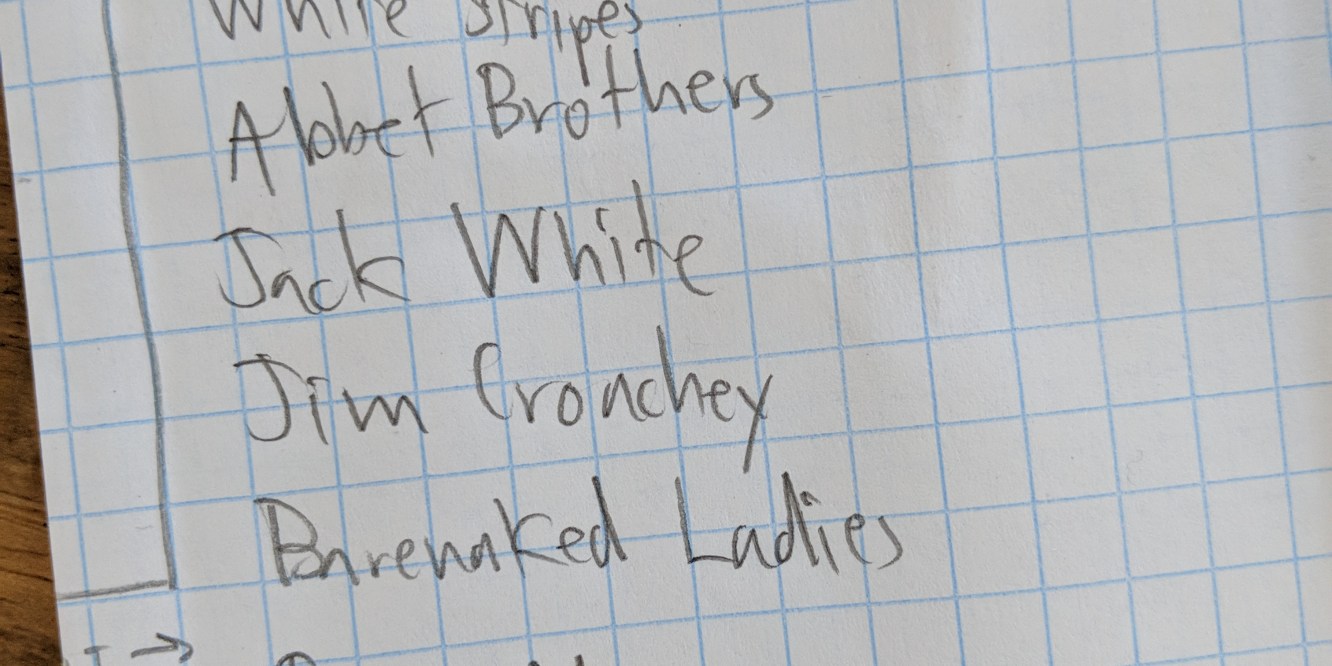 White Stripes
Abbet Brothers
Jack White
Jim Cronchey
Barenaked Ladies